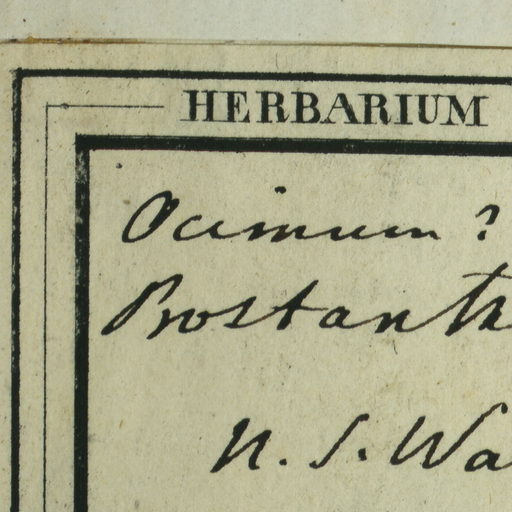 HERBARIUM
Ocimum ?
Prostanth
N. S. Wa